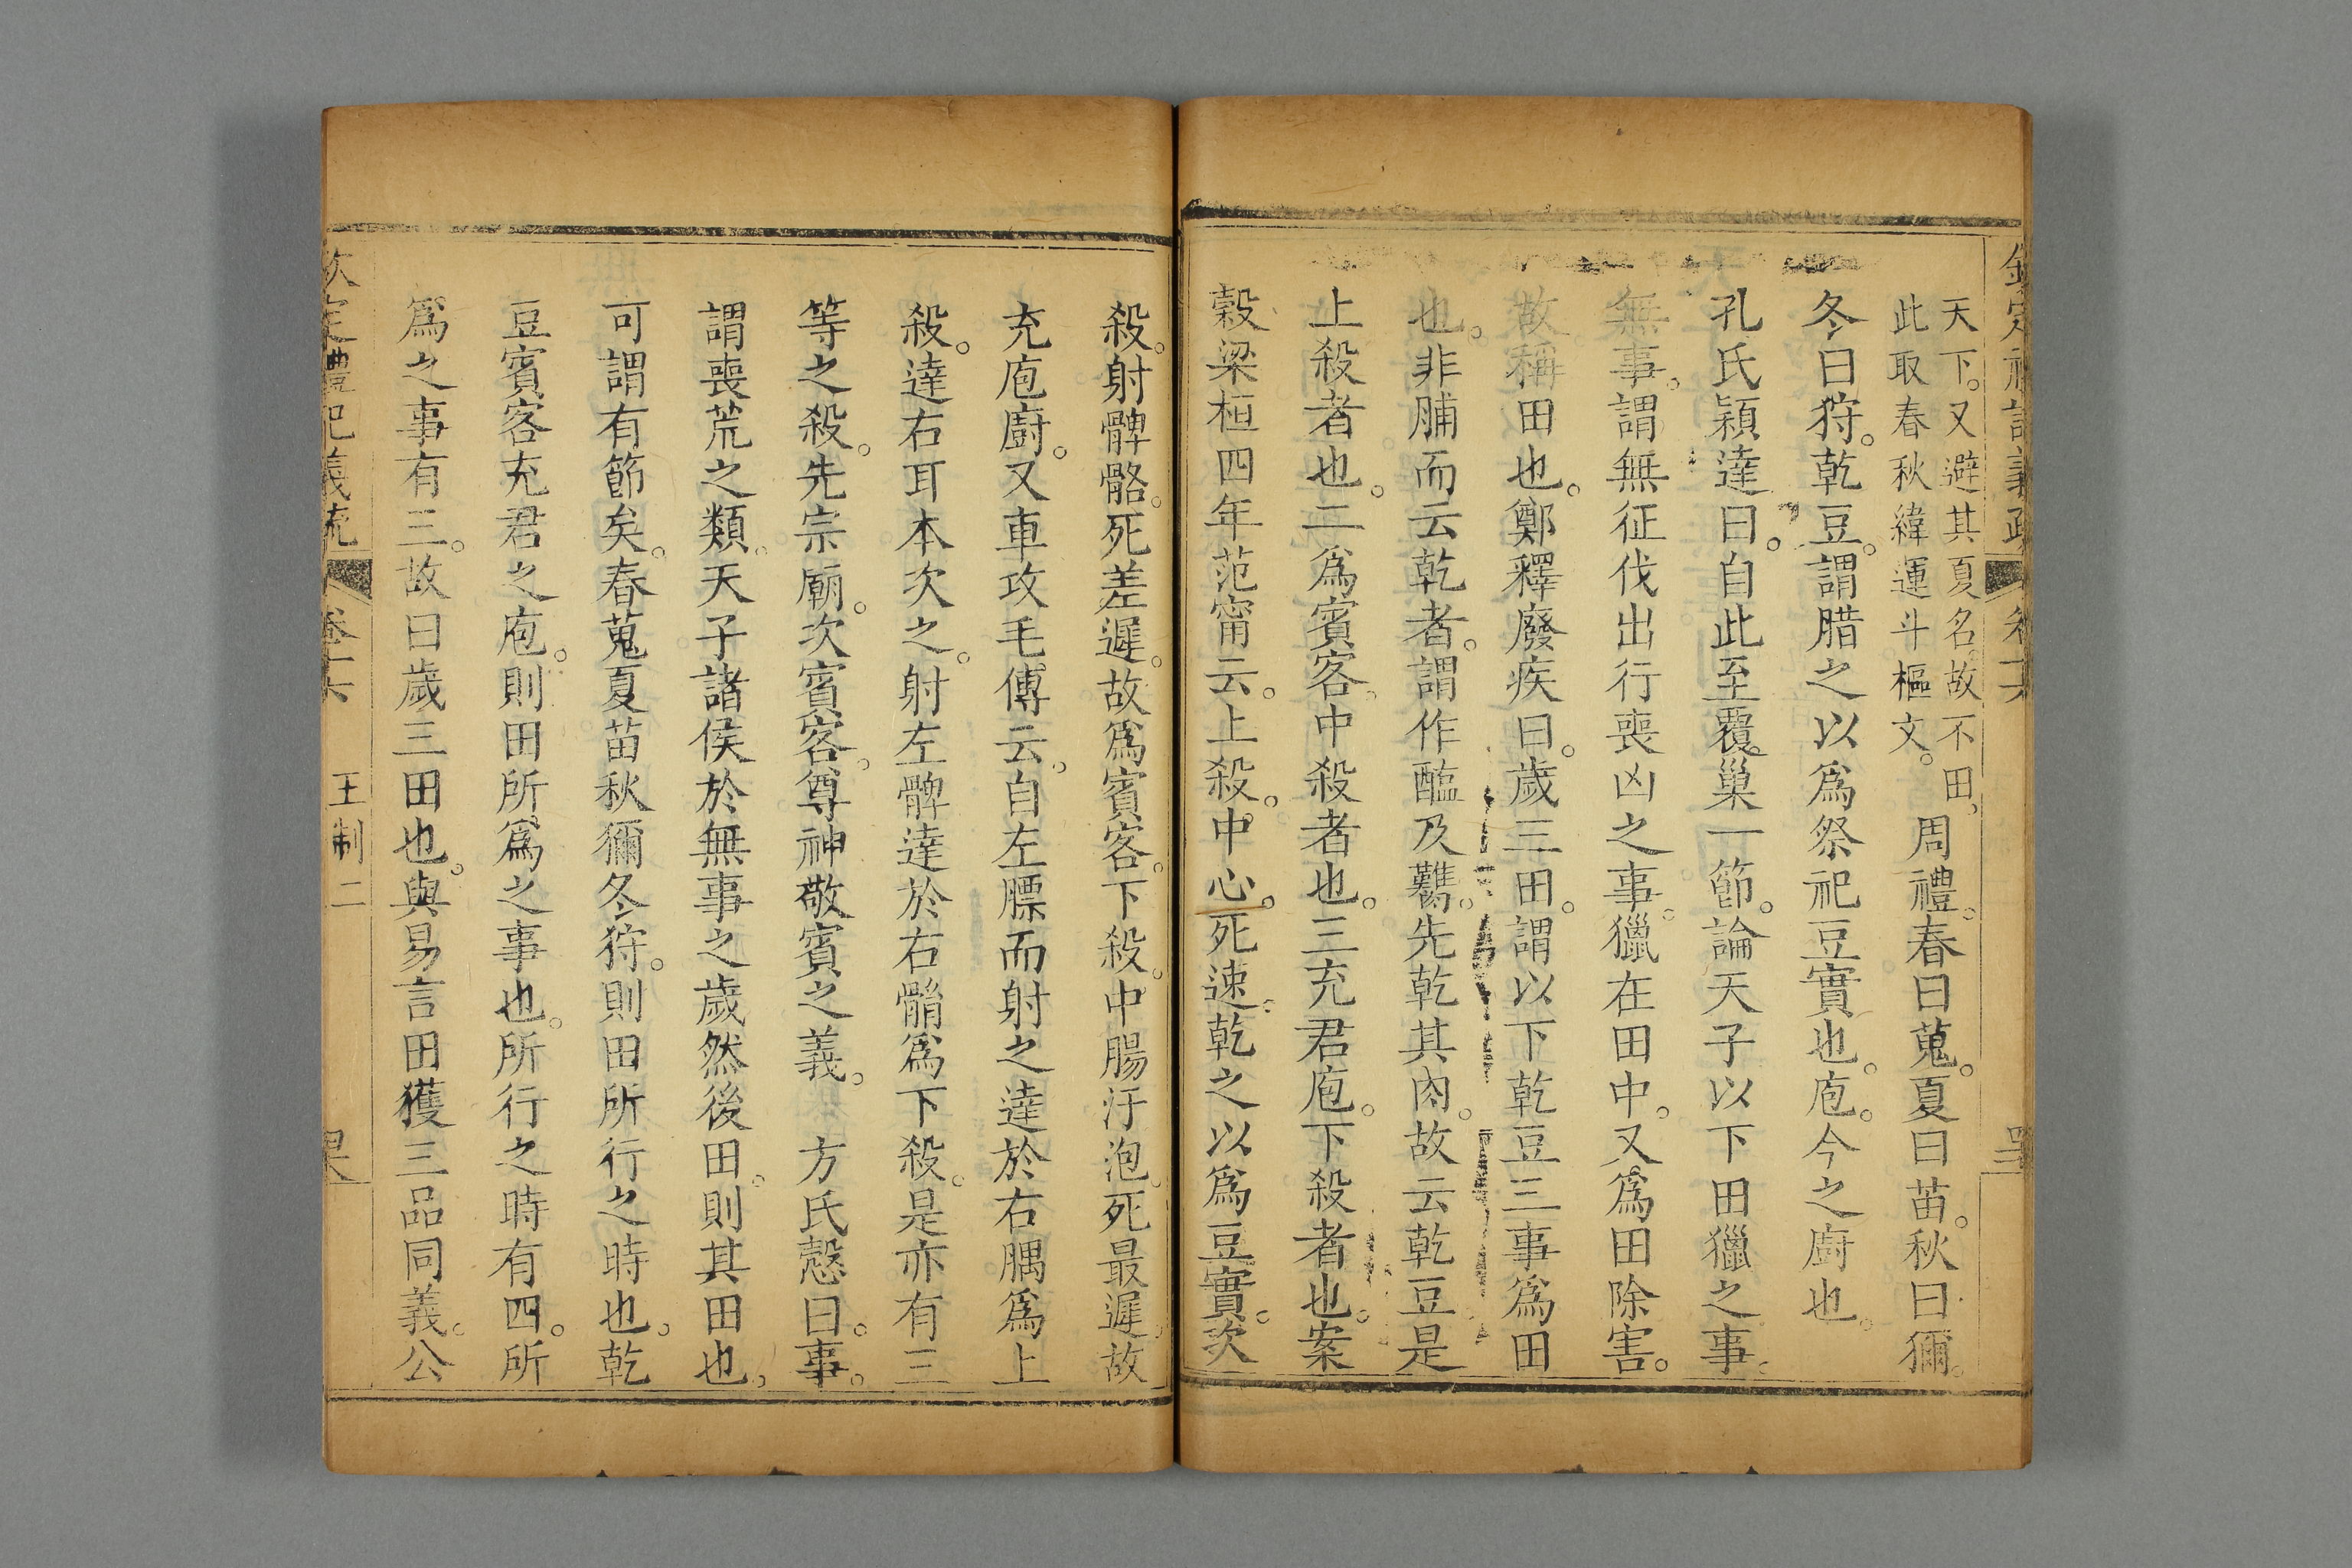 欽定禮記義疏 卷十六
天下。又避其夏名。故不田。
此取春秋緯運斗樞文。
周禮。春曰蒐。夏曰苗。秋曰獮。
冬曰狩。乾豆。謂腊之以爲祭祀豆實也。庖。今之廚也。
孔氏穎達曰。自此至覆巢一節。論天子以下田獵之事。
無事。謂無征伐出行喪凶之事。獵在田中。又爲田除害。
故稱田也。鄭釋廢疾曰。歲三田。謂以下乾豆三事爲田
也。非脯而云乾者。謂作醢及臡。先乾其肉。故云乾豆是
上殺者也。二爲賓客。中殺者也。三充君庖。下殺者也。案
穀梁桓四年范甯云。上殺。中心。死速。乾之以爲豆實。次
殺。射髀骼。死差遲。故爲賓客。下殺。中腸汙泡。死最遲。故
充庖廚。又車攻毛傳云。自左膘而射之達於右腢爲上
殺。達右耳本次之。射左髀達於右䯚爲下殺。是亦有三
等之殺。先宗廟。次賓客。尊神敬賓之義。 方氏慤曰。事。
謂喪荒之類。天子諸侯於無事之歲然後田。則其田也。
可謂有節矣。春蒐夏苗秋獮冬狩。則田所行之時也。乾
豆賓客充君之庖。則田所爲之事也。所行之時有四。所
爲之事有三。故曰歲三田也。與易言田獲三品同義。公
欽定禮記義疏 卷十六 王制二